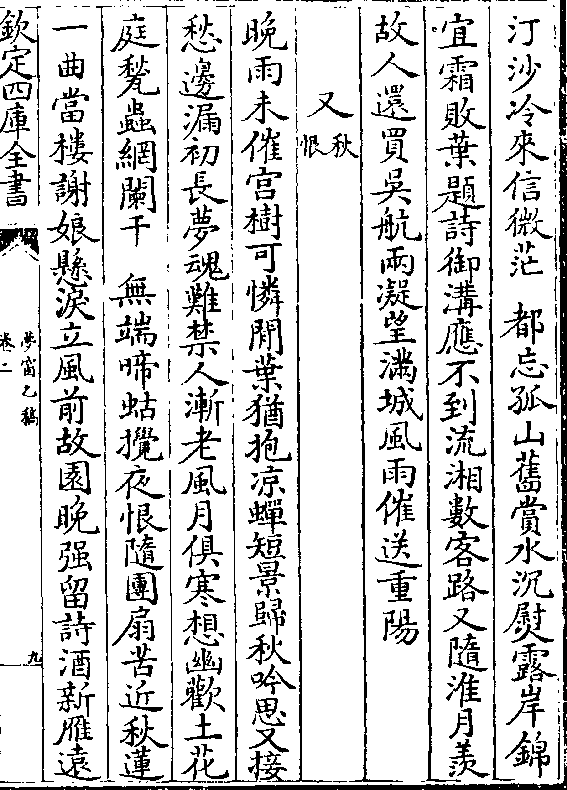 汀沙冷來信微茫　都忘孤山舊賞水沉熨露岸錦
宜霜敗葉題詩御溝應不到流湘數客路又隨淮月羡
故人還買吳航兩凝望滿城風雨催送重陽
又秋恨
晚雨未催宮樹可憐閒葉猶抱凉蟬短景歸秋吟思又接
愁邊漏初長夢魂難禁人漸老風月俱寒想幽歡土花
庭甃蟲網闌干　無端啼蛄攪夜恨隨團扇苦近秋蓮
一曲當樓謝娘懸淚立風前故園晚强留詩酒新雁遠
欽定四庫全書
夢窗乙稿
卷二
九